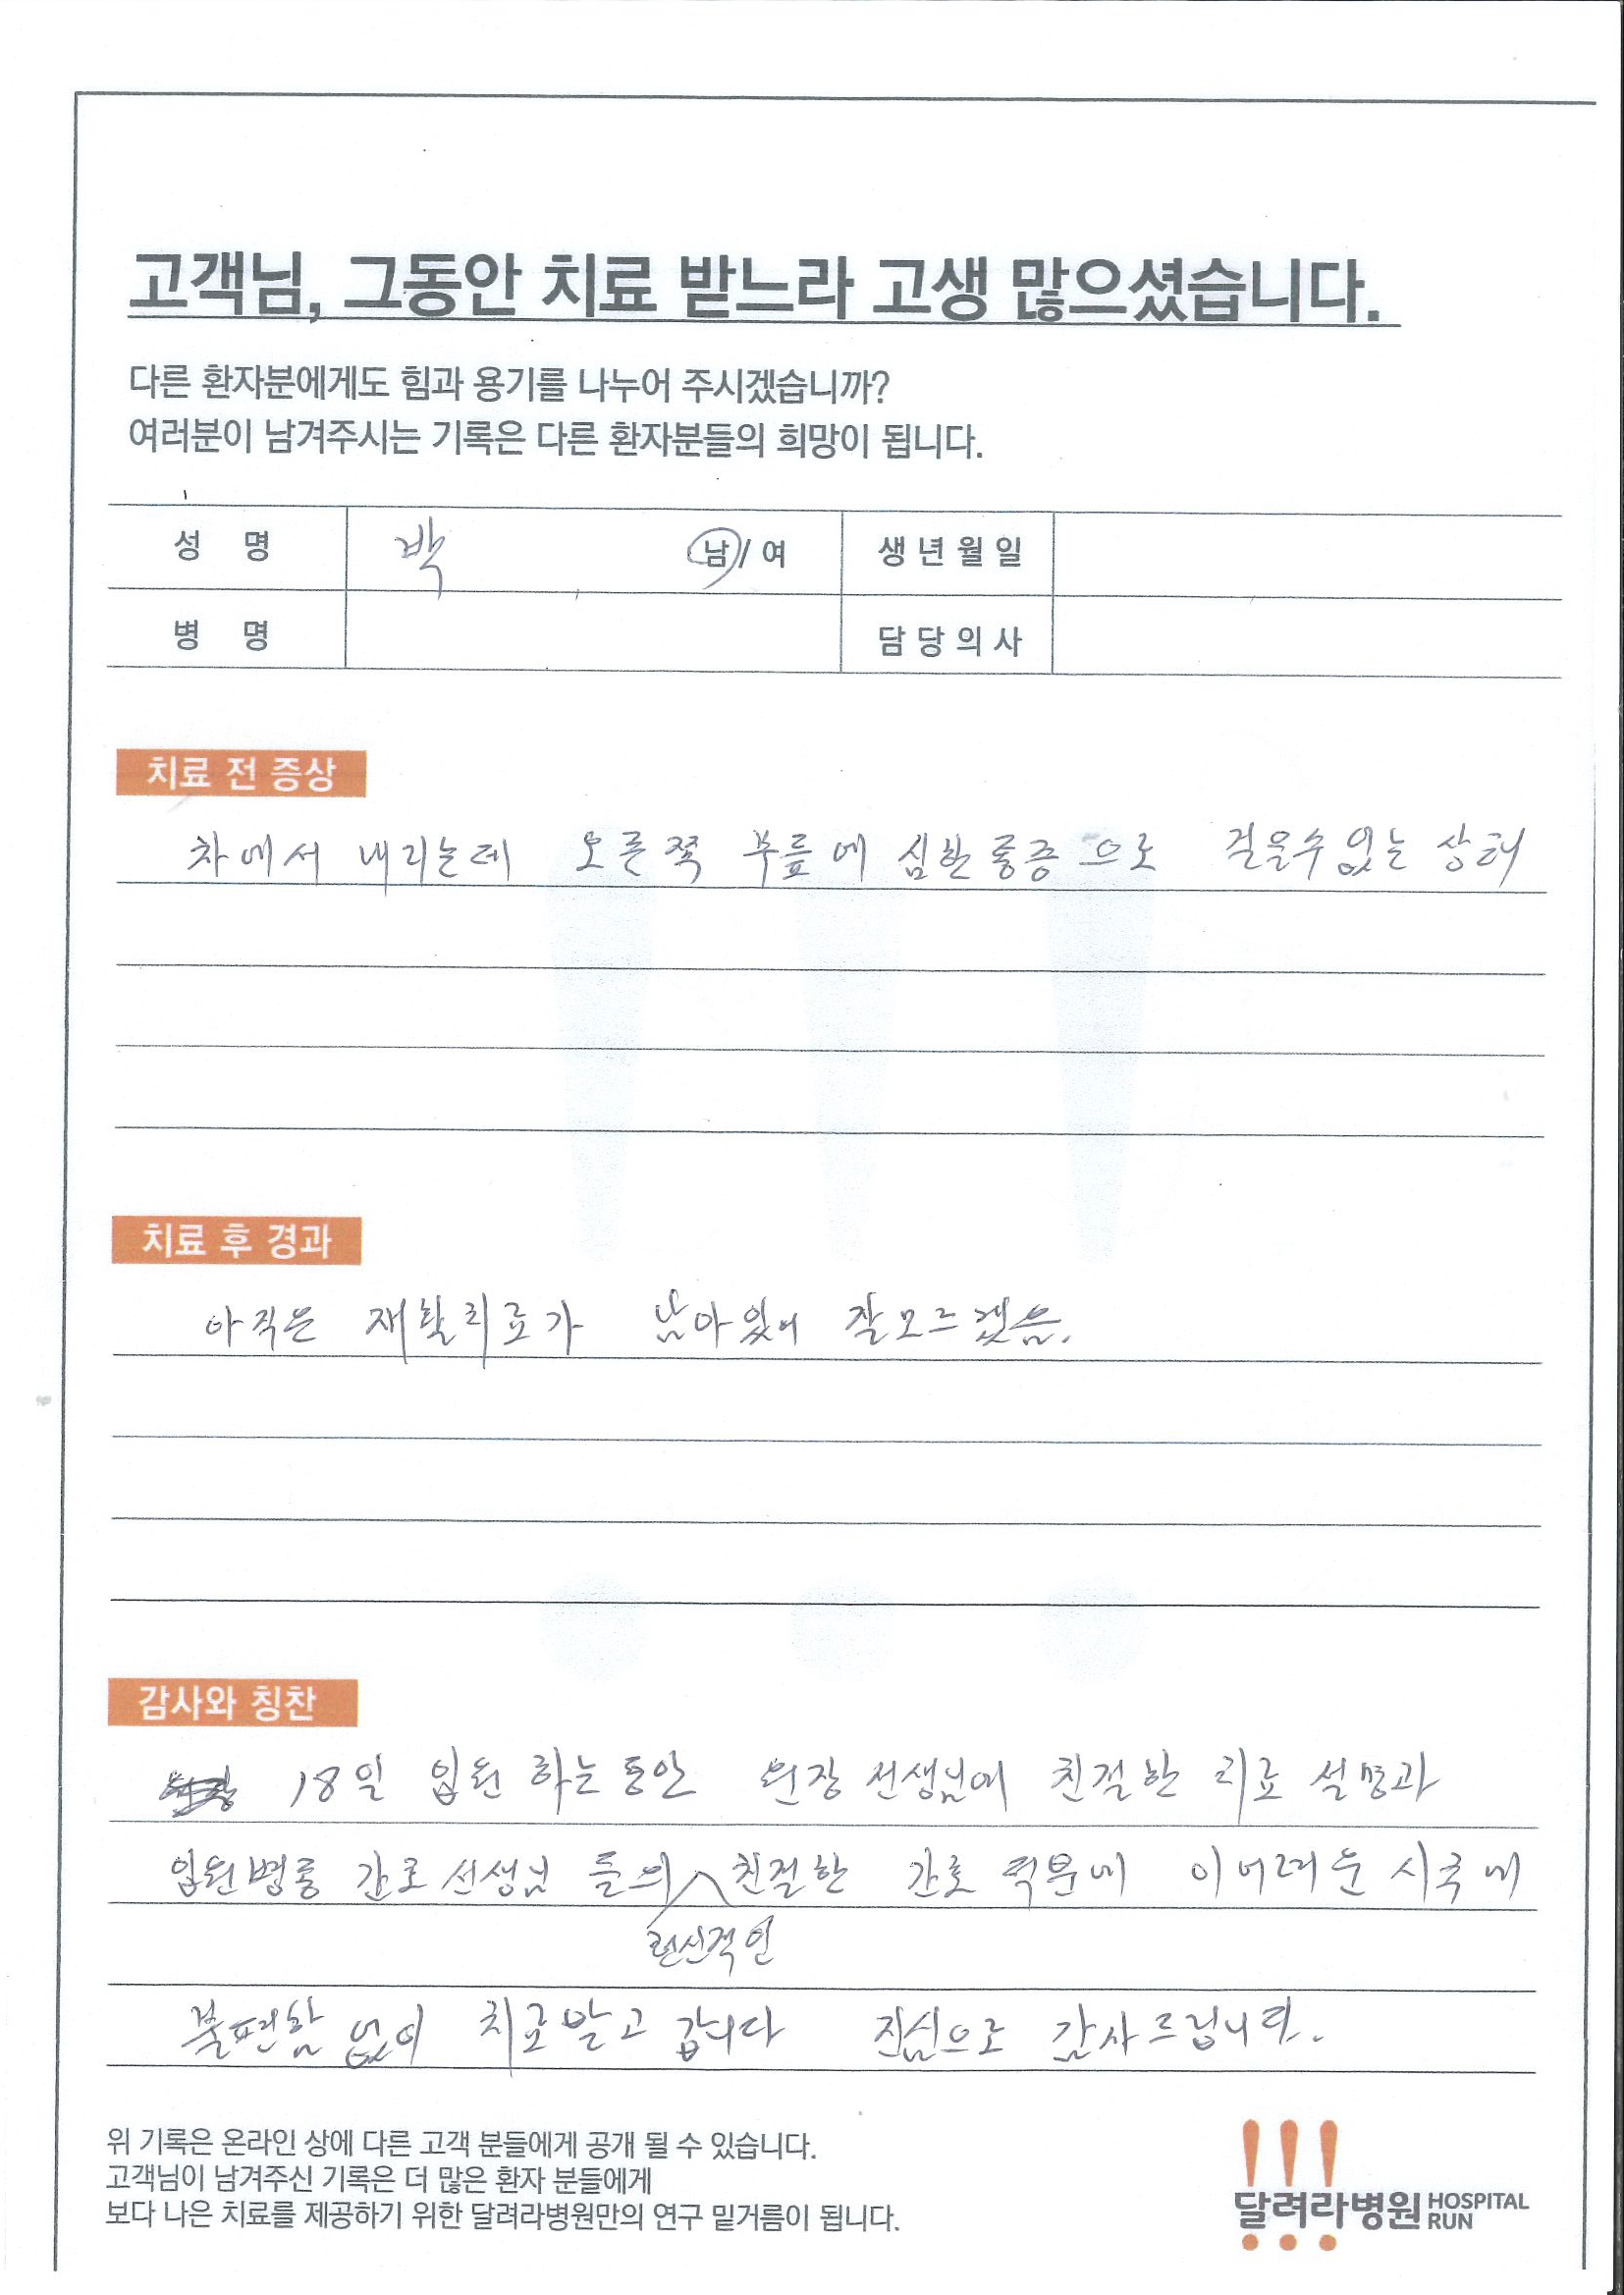 고객님, 그동안 치료 받느라 고생 많으셨습니다.
다른 환자분에게도 힘과 용기를 나누어 주시겠습니까?
여러분이 남겨주시는 기록은 다른 환자분들의 희망이 됩니다.
성 명 박 남/여 생년월일
병 명 담당의사
치료 전 증상
차에서 내리는데 오른쪽 무릎에 심한통증으로 걸을수없는 상태
치료 후 경과
아직은 재활치료가 남아있어 잘모르겠음.
감사와 칭찬
18일 입원 하는동안 원장 선생님에 친절한 치료 설명과
입원병동 간호선생님 들의 친절한 간호 덕분에 이어려운 시국에
헌신적인
불편함 없이 치료받고 갑니다 진심으로 감사드립니다.
위 기록은 온라인 상에 다른 고객 분들에게 공개 될 수 있습니다.
고객님이 남겨주신 기록은 더 많은 환자 분들에게
보다 나은 치료를 제공하기 위한 달려라병원만의 연구 밑거름이 됩니다.
달려라병원 HOSPITAL RUN